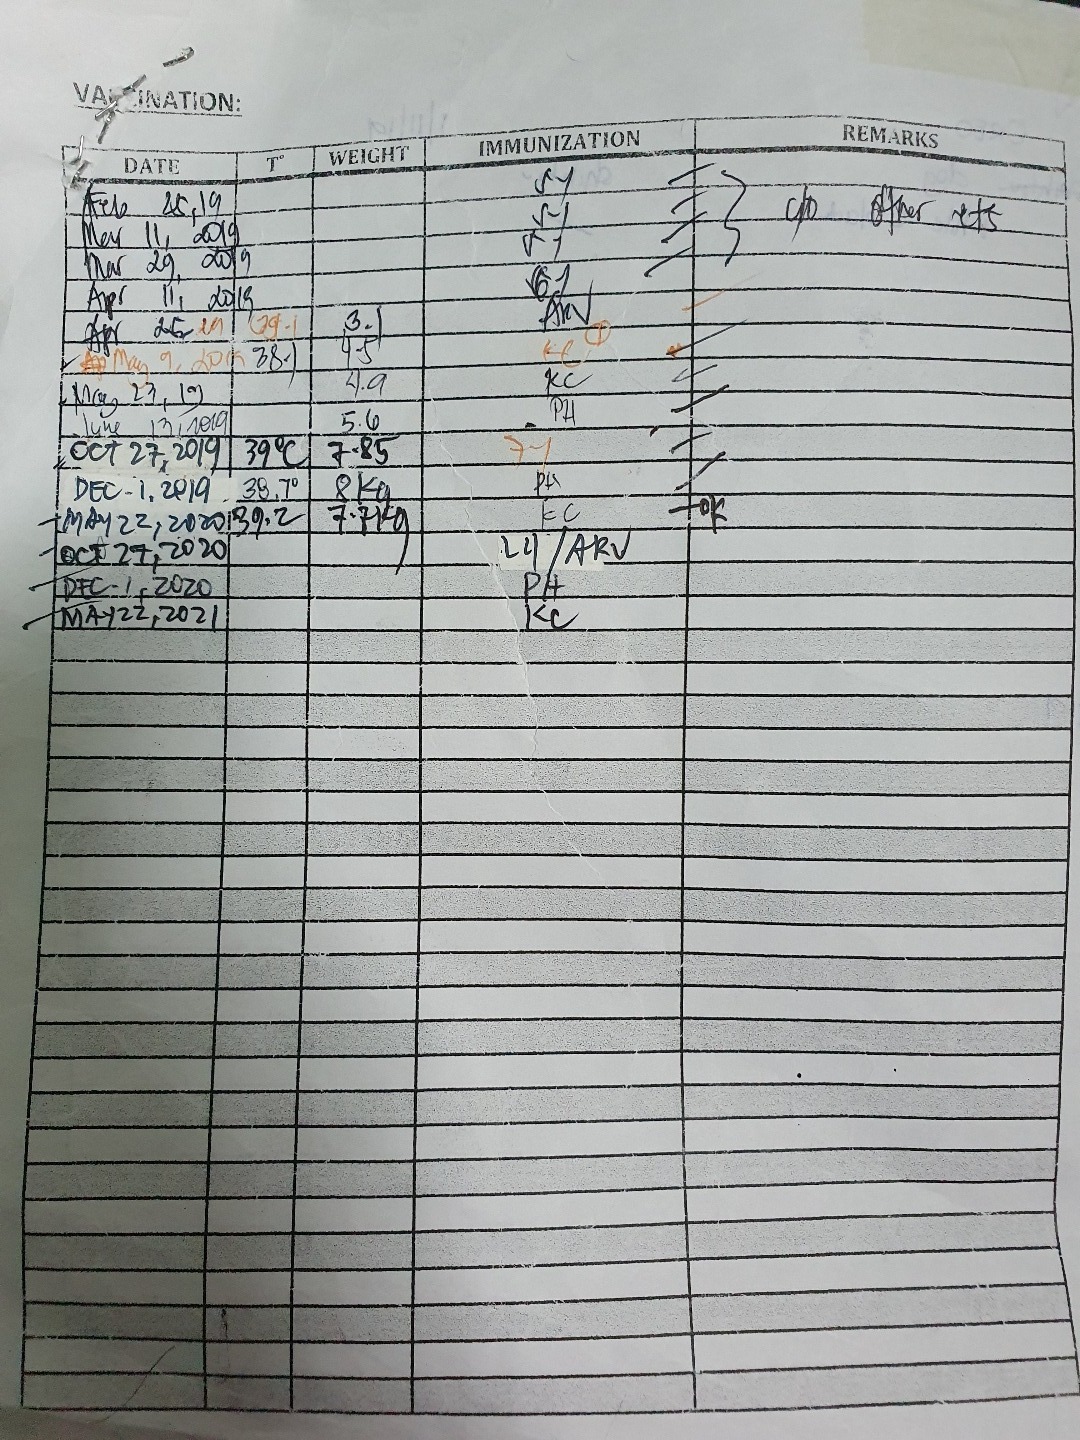 VACCINATION:
DATE T° WEIGHT IMMUNIZATION REMARKS
Feb 25, 19 5-1 c/o other vets
Mar 11, 2019 5-1
Mar 29, 2019 5-1
Apr 11, 2019 6-1
Apr 25 19 3.1 ARV
May 9, 2019 38.1 4.5 KC 1
May 23, 19 4.9 KC
June 13, 2019 5.6 PH
OCT 27, 2019 39°C 7.85 7-1
DEC-1, 2019 38.7° 8Kg PH
MAY 22, 2020 39.2 7.7Kg KC OK
OCT 27, 2020 L4/ARV
DEC-1, 2020 PH
MAY 22, 2021 KC